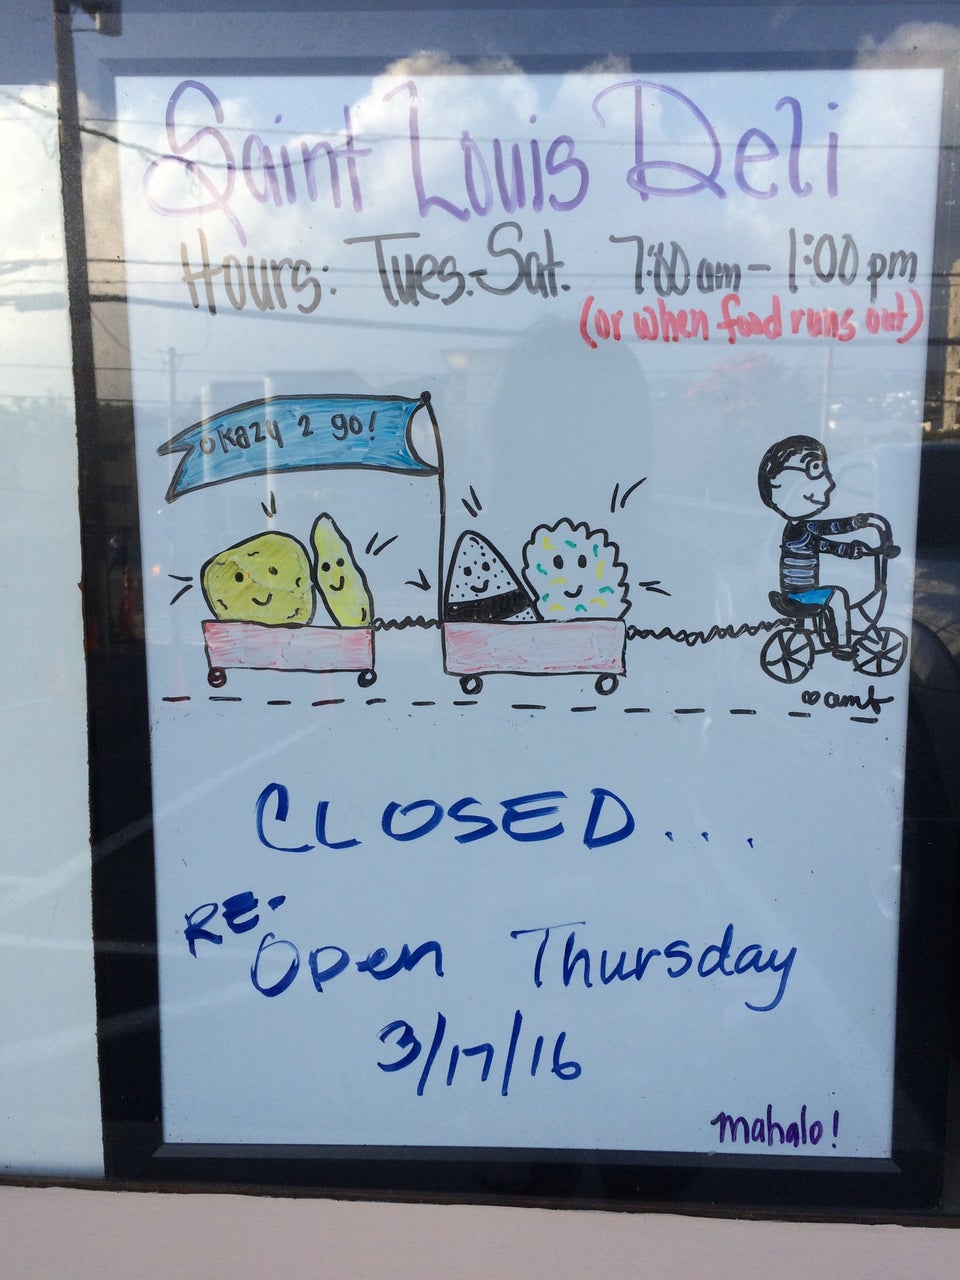 Saint Louis Deli
Hours: Tues.-Sat. 7:00am-1:00pm
(or when food runs out)
okazu 2 go!
♡amt
CLOSED...
RE-Open Thursday
3/17/16
mahalo!